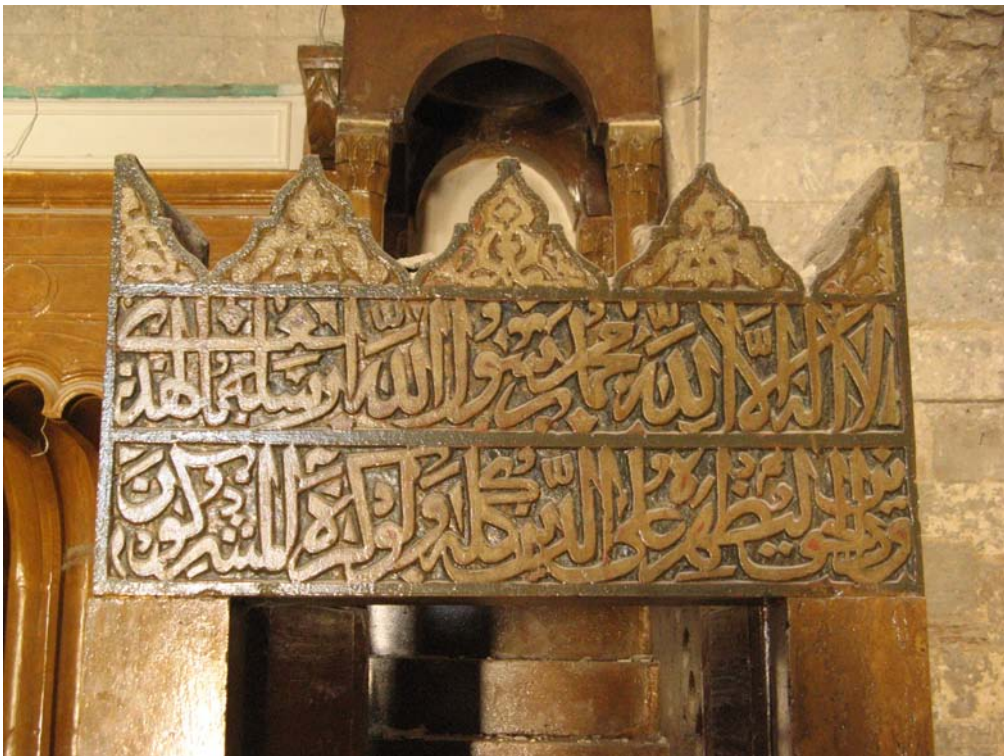 لا اله الا الله محمد رسول الله ارسله بالهدى
ودين الحق ليظهره على الدين كله ولو كره المشركون